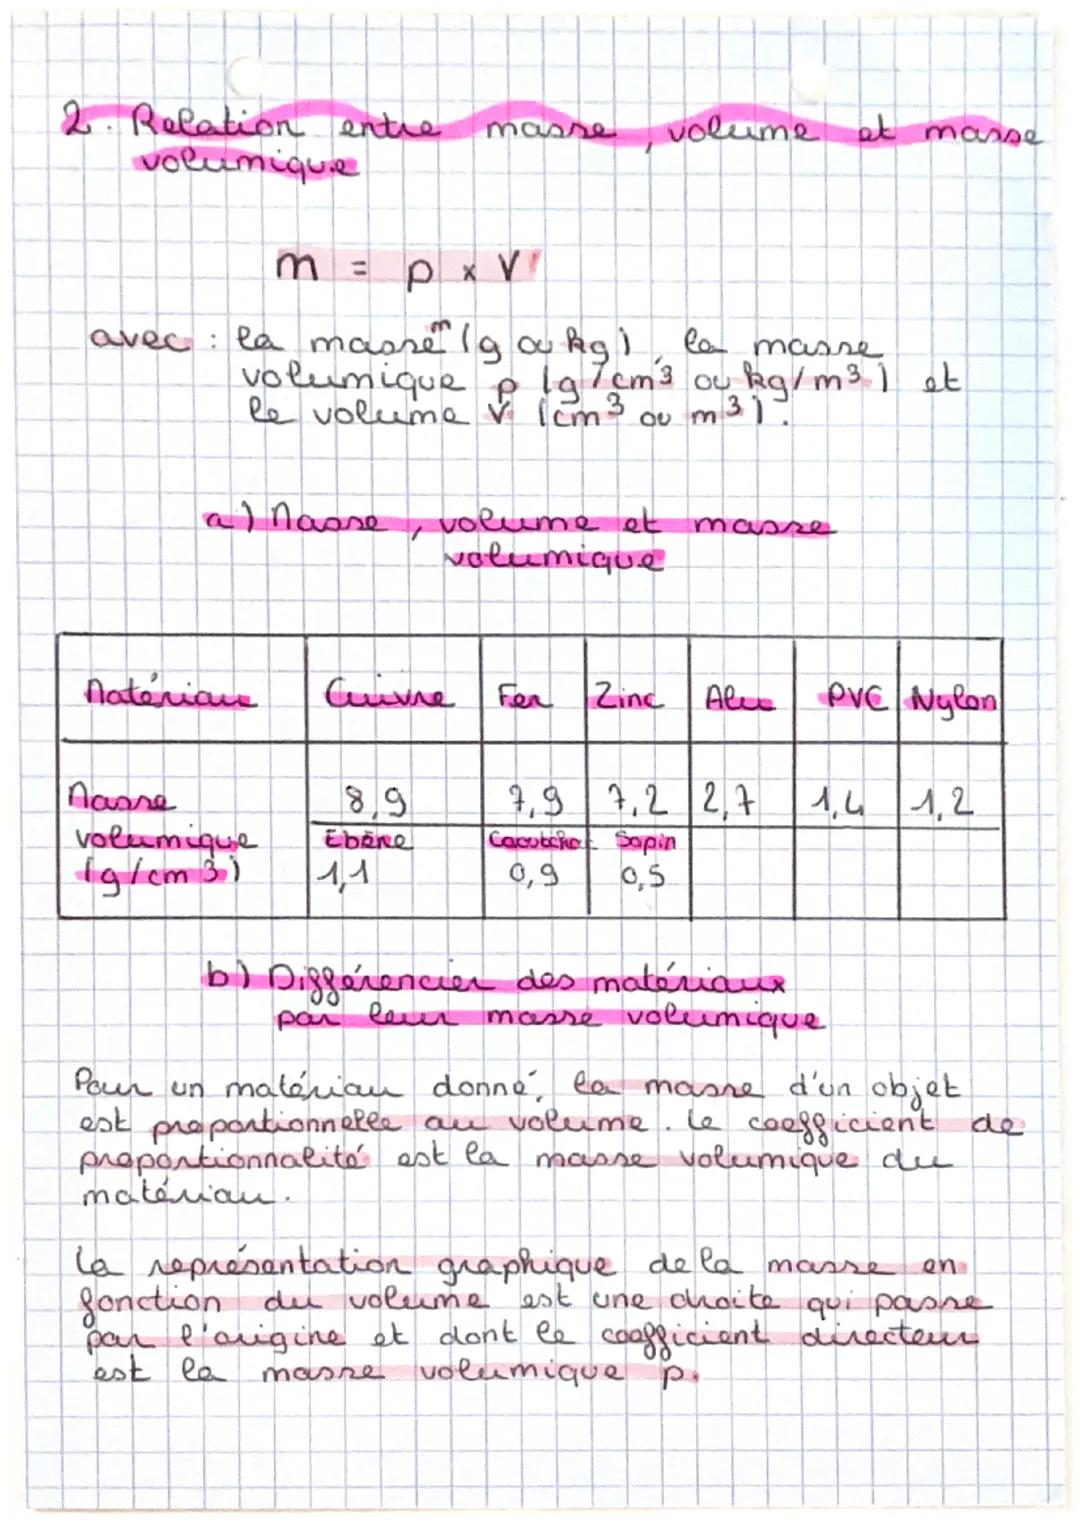 2. Relation entre masse, volume et masse
volumique
m = ρ x V
avec : la masse m (g ou kg), la masse
volumique ρ (g/cm3 ou kg/m3) et
le volume V (cm3 ou m3).
a) Masse, volume et masse
volumique
Matériau Cuivre Fer Zinc Alu PVC Nylon
Masse 8,9 7,9 7,2 2,7 1,4 1,2
volumique Ebène Caoutcho Sapin
(g/cm3) 1,1 0,9 0,5
b) Différencier des matériaux
par leur masse volumique
Pour un matériau donné, la masse d'un objet
est proportionnelle au volume. Le coefficient de
proportionnalité est la masse volumique du
matériau.
La représentation graphique de la masse en
fonction du volume est une droite qui passe
par l'origine et dont le coefficient directeur
est la masse volumique ρ.